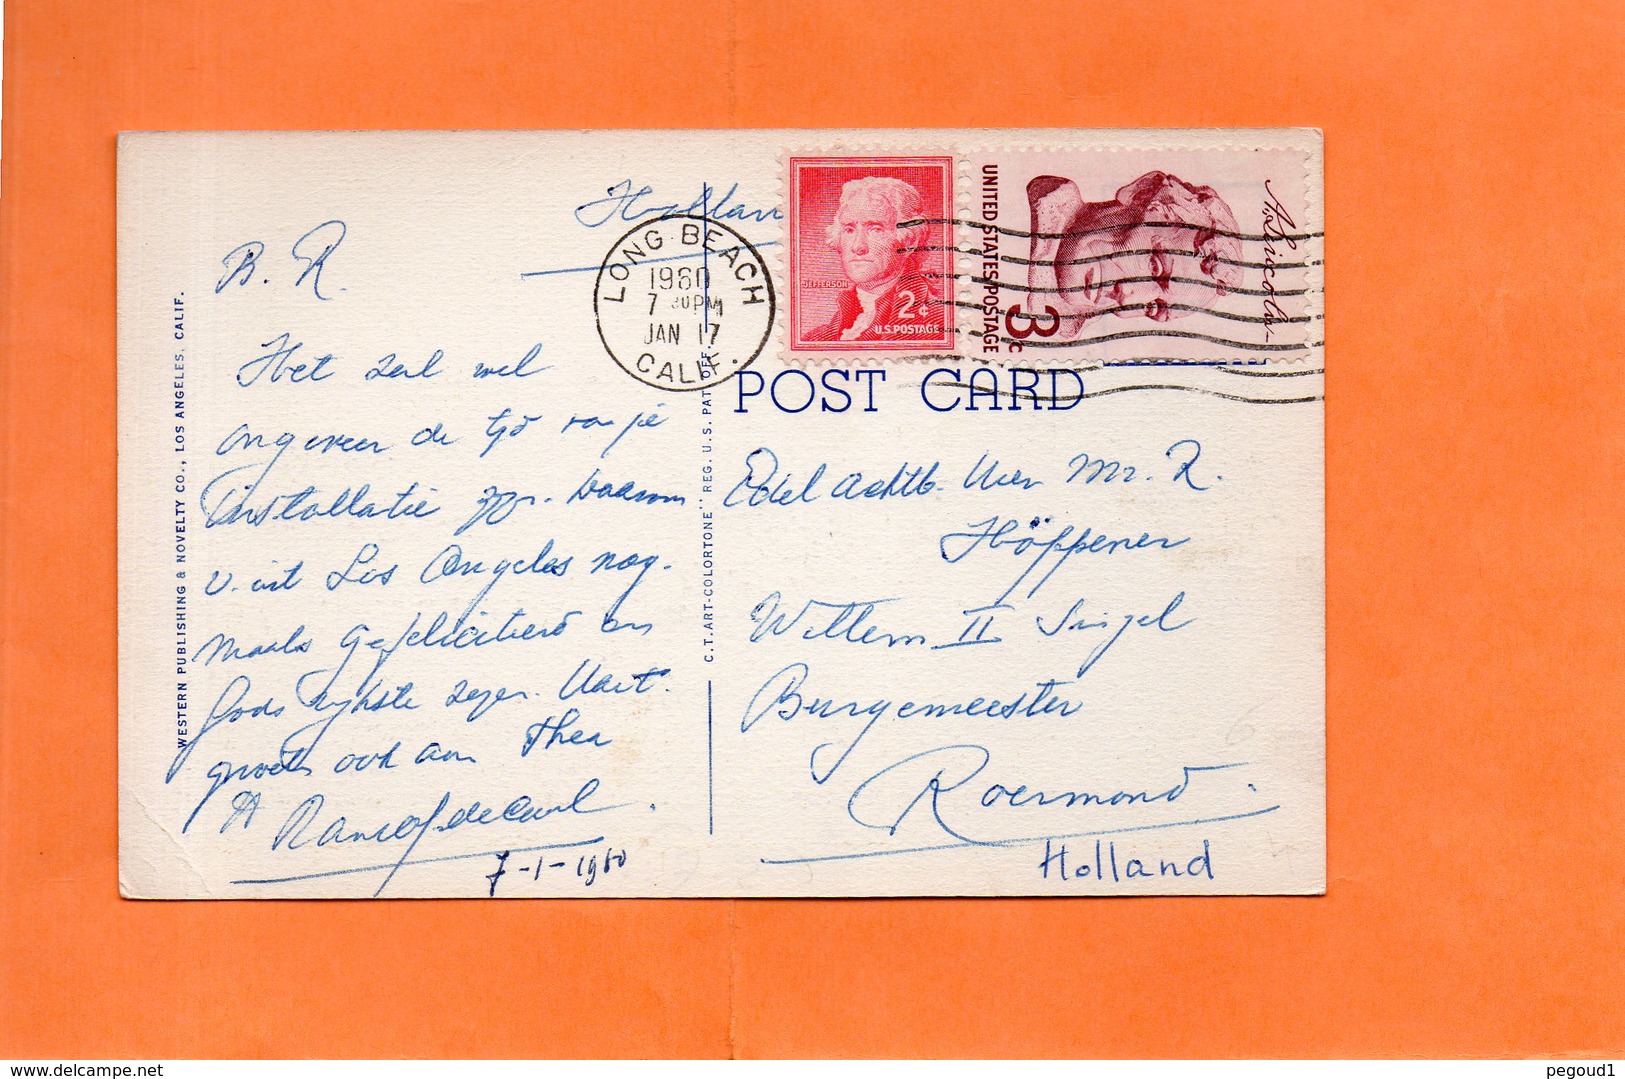 Hollan
B. R.
Het zal wel
ongeveer de tyd van je
installatie zyn. Daarom
v. uit Los Angeles nog-
maals gefeliciteerd en
Gods rykste zegen. Hart.
groeten ook aan Thea
7-1-1960
WESTERN PUBLISHING & NOVELTY CO., LOS ANGELES, CALIF.
C.T. ART-COLORTONE REG. U.S. PAT. OFF.
LONG BEACH
CALIF.
1960
7 30 PM
JAN 17
JEFFERSON
2¢
U.S. POSTAGE
UNITED STATES POSTAGE
3c
A. Lincoln
POST CARD
Edel Achtb. Heer Mr. R.
Höppener
Willem II Singel
Burgemeester
Roermond.
Holland
pegoud1